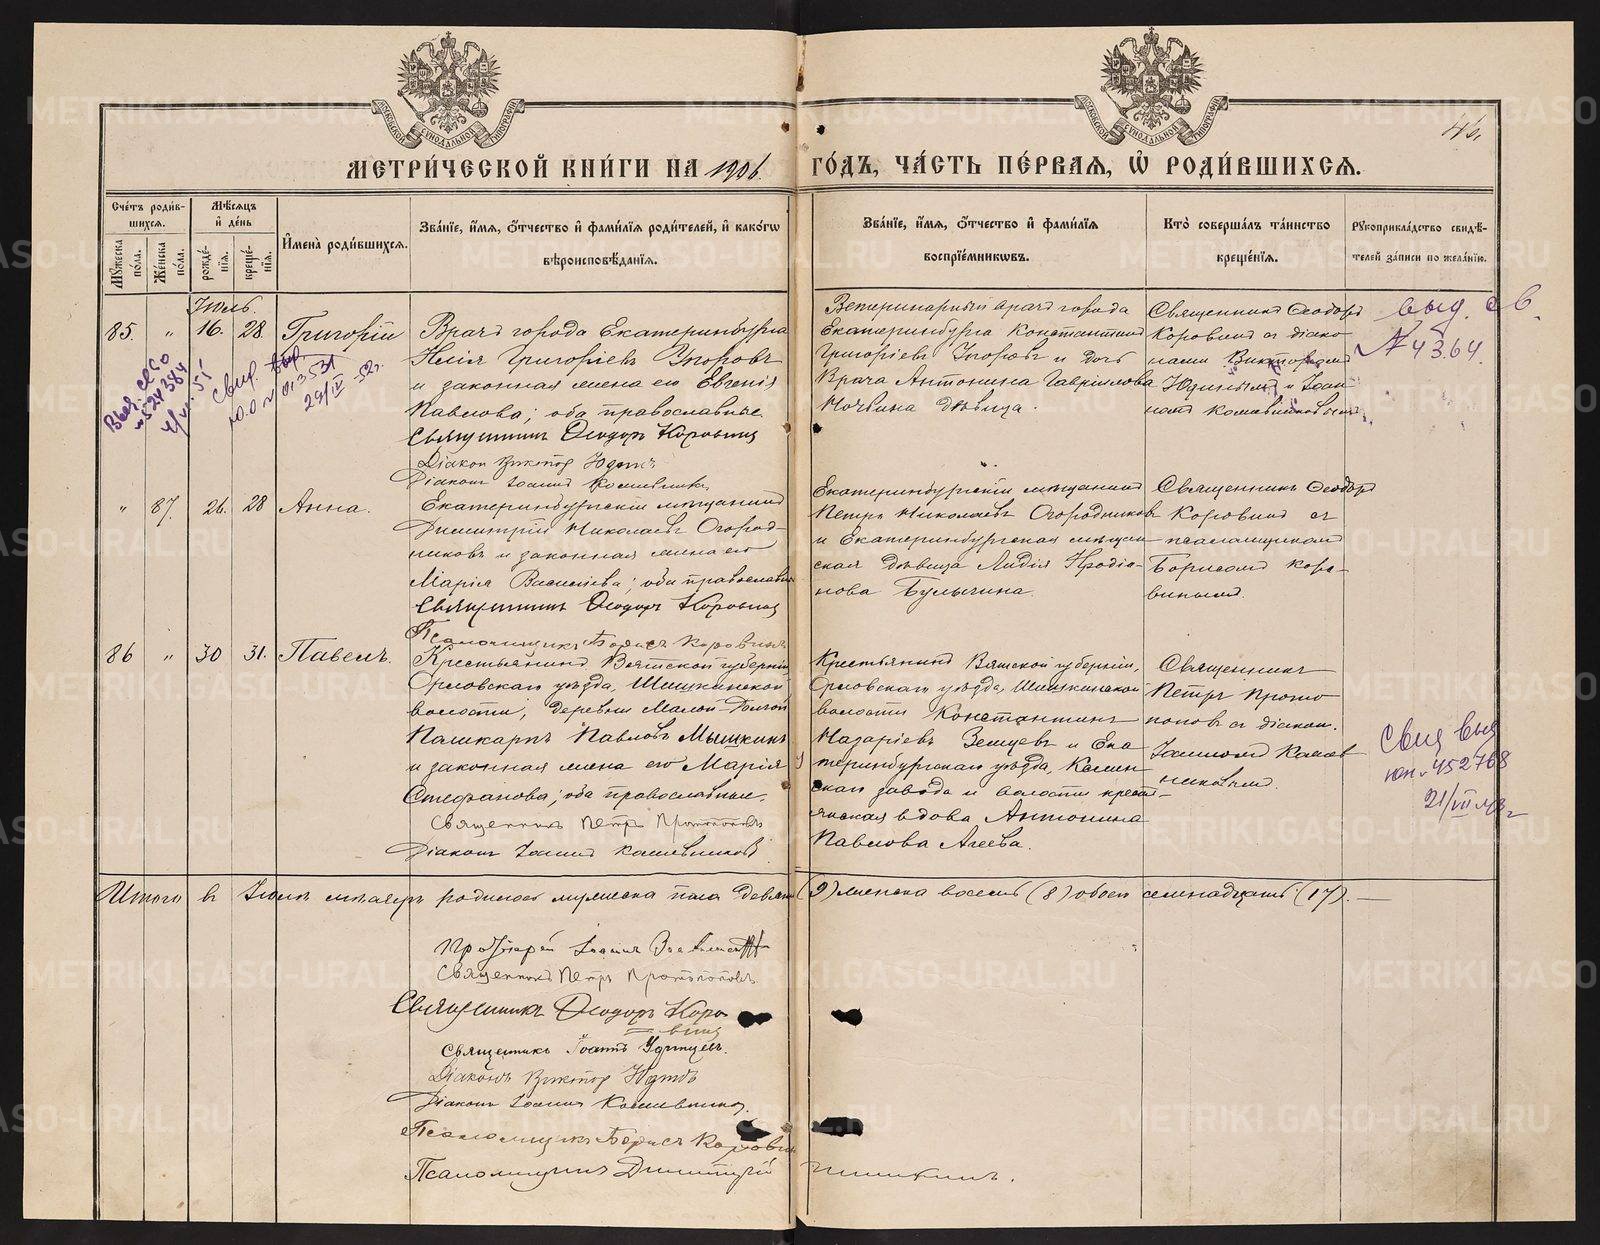 МОСКОВСКОЙ СѴНОДАЛЬНОЙ ТИПОГРАФІИ
МОСКОВСКОЙ СѴНОДАЛЬНОЙ ТИПОГРАФІИ
МЕТРИ́ЧЕСКОЙ КНИ́ГИ НА 1906. ГО́ДЪ, ЧА́СТЬ ПЕ́РВАѦ, Ѽ РОДИ́ВШИХСѦ.
Сче́тъ роди́в-
шихсѧ.
Мꙋ́жеска по́ла.
Же́нска по́ла.
Мѣ́сѧцъ
и҆ де́нь
рожде́-
нїѧ.
креще́-
нїѧ.
И҆мена̀ роди́вшихсѧ.
Зва́нїе, и҆́мѧ, ѻ҆́тчество и҆ фами́лїѧ роди́телей, и҆ како́гѡ
вѣроисповѣ́данїѧ.
Зва́нїе, и҆́мѧ, ѻ҆́тчество и҆ фами́лїѧ
воспрїе́мникѡвъ.
Кто̀ соверша́лъ та́инство
креще́нїѧ.
Рꙋкоприкла́дство свидѣ́-
телей за́писи по жела́нїю.
Іюль.
85. " 16. 28. Григорій
Врачъ города Екатеринбурга
Григоріевъ
и законная жена его Евгенія
Павлова; оба православные.
Священникъ Ѳеодоръ Коровинъ
Діакон Викторъ Юдинъ
Діаконъ Іоаннъ Кошевниковъ
Ветеринарный врачъ города
Екатеринбурга Константинъ
Григоріевъ и дочь
врача Антонина Гавріилова
дѣвица.
Священникъ Ѳеодоръ
Коровинъ съ діако-
нами Викторомъ
Юдинымъ и Іоан-
номъ Кошевниковымъ
выд. св.
№ 4364.
свид. выд.
29/IV 52г.
" 87. 26. 28 Анна.
Екатеринбургскій мѣщанинъ
Димитрій Николаевъ Огород-
никовъ и законная жена его
Марія Васильева; оба православные
Священникъ Ѳеодоръ Коровинъ
Псаломщикъ Борисъ Коровинъ
Екатеринбургскій мѣщанинъ
Петръ Николаевъ Огородниковъ
и Екатеринбургская мѣщан-
ская дѣвица Лидія Иродіо-
нова Булычина.
Священникъ Ѳеодоръ
Коровинъ съ
псаломщикомъ
Борисомъ Коро-
винымъ.
86 " 30 31. Павелъ.
Крестьянинъ Вятской губерніи
Орловскаго уѣзда,
волости, деревни Малой
Павловъ Мышкинъ
и законная жена его Марія
Стефанова; оба православные.
Священникъ Петръ Протопоповъ
Діаконъ Іоаннъ Кошевниковъ
Крестьянинъ Вятской губерніи,
Орловскаго уѣзда,
волости Константинъ
Назаріевъ Земцевъ и Ека-
теринбургскаго уѣзда,
скаго завода и волости кресть-
янская вдова Антонина
Павлова Агеева.
Священникъ
Петръ Прото-
поповъ съ діакон.
Іоанномъ Кошев-
никовымъ.
свид выд
452768
Итого въ Іюлѣ мѣсяцѣ родилось мужеска пола девять (9) женска восемь (8) обоего семнадцать (17). —
Священникъ Петръ Протопоповъ
Священникъ Ѳеодоръ Коро-
винъ
Священникъ Іоаннъ Удинцевъ.
Діаконъ Викторъ Юдинъ
Діаконъ Іоаннъ Кошевниковъ.
Псаломщикъ Борисъ Коровин
Псаломщикъ Димитрій
METRIKI.GASO-URAL.RU